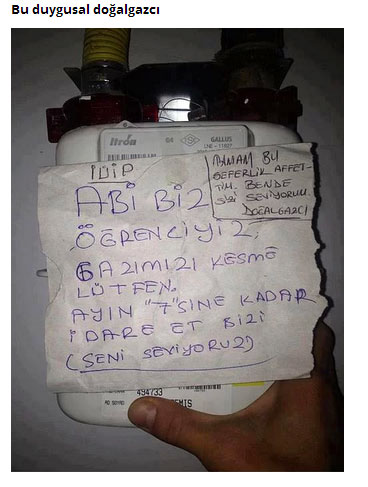 Bu duygusal doğalgazcı
Itron
G4
GALLUS
ABİ BİZ
ÖĞRENCİYİZ,
GAZIMIZI KESME
LÜTFEN.
AYIN "7"SİNE KADAR
İDARE ET BİZİ
(SENİ SEVİYORUZ)
TAMAM BU
SEFERLİK AFFET-
TİM. BENDE
SİZİ SEVİYORUM
DOĞALGAZCI
494733